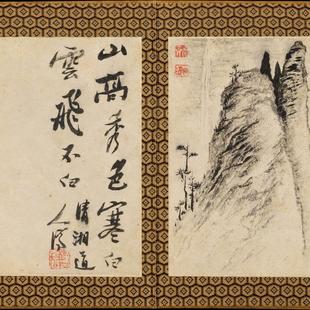 山高秀色寒白
雲飛不到
清湘道
人濟